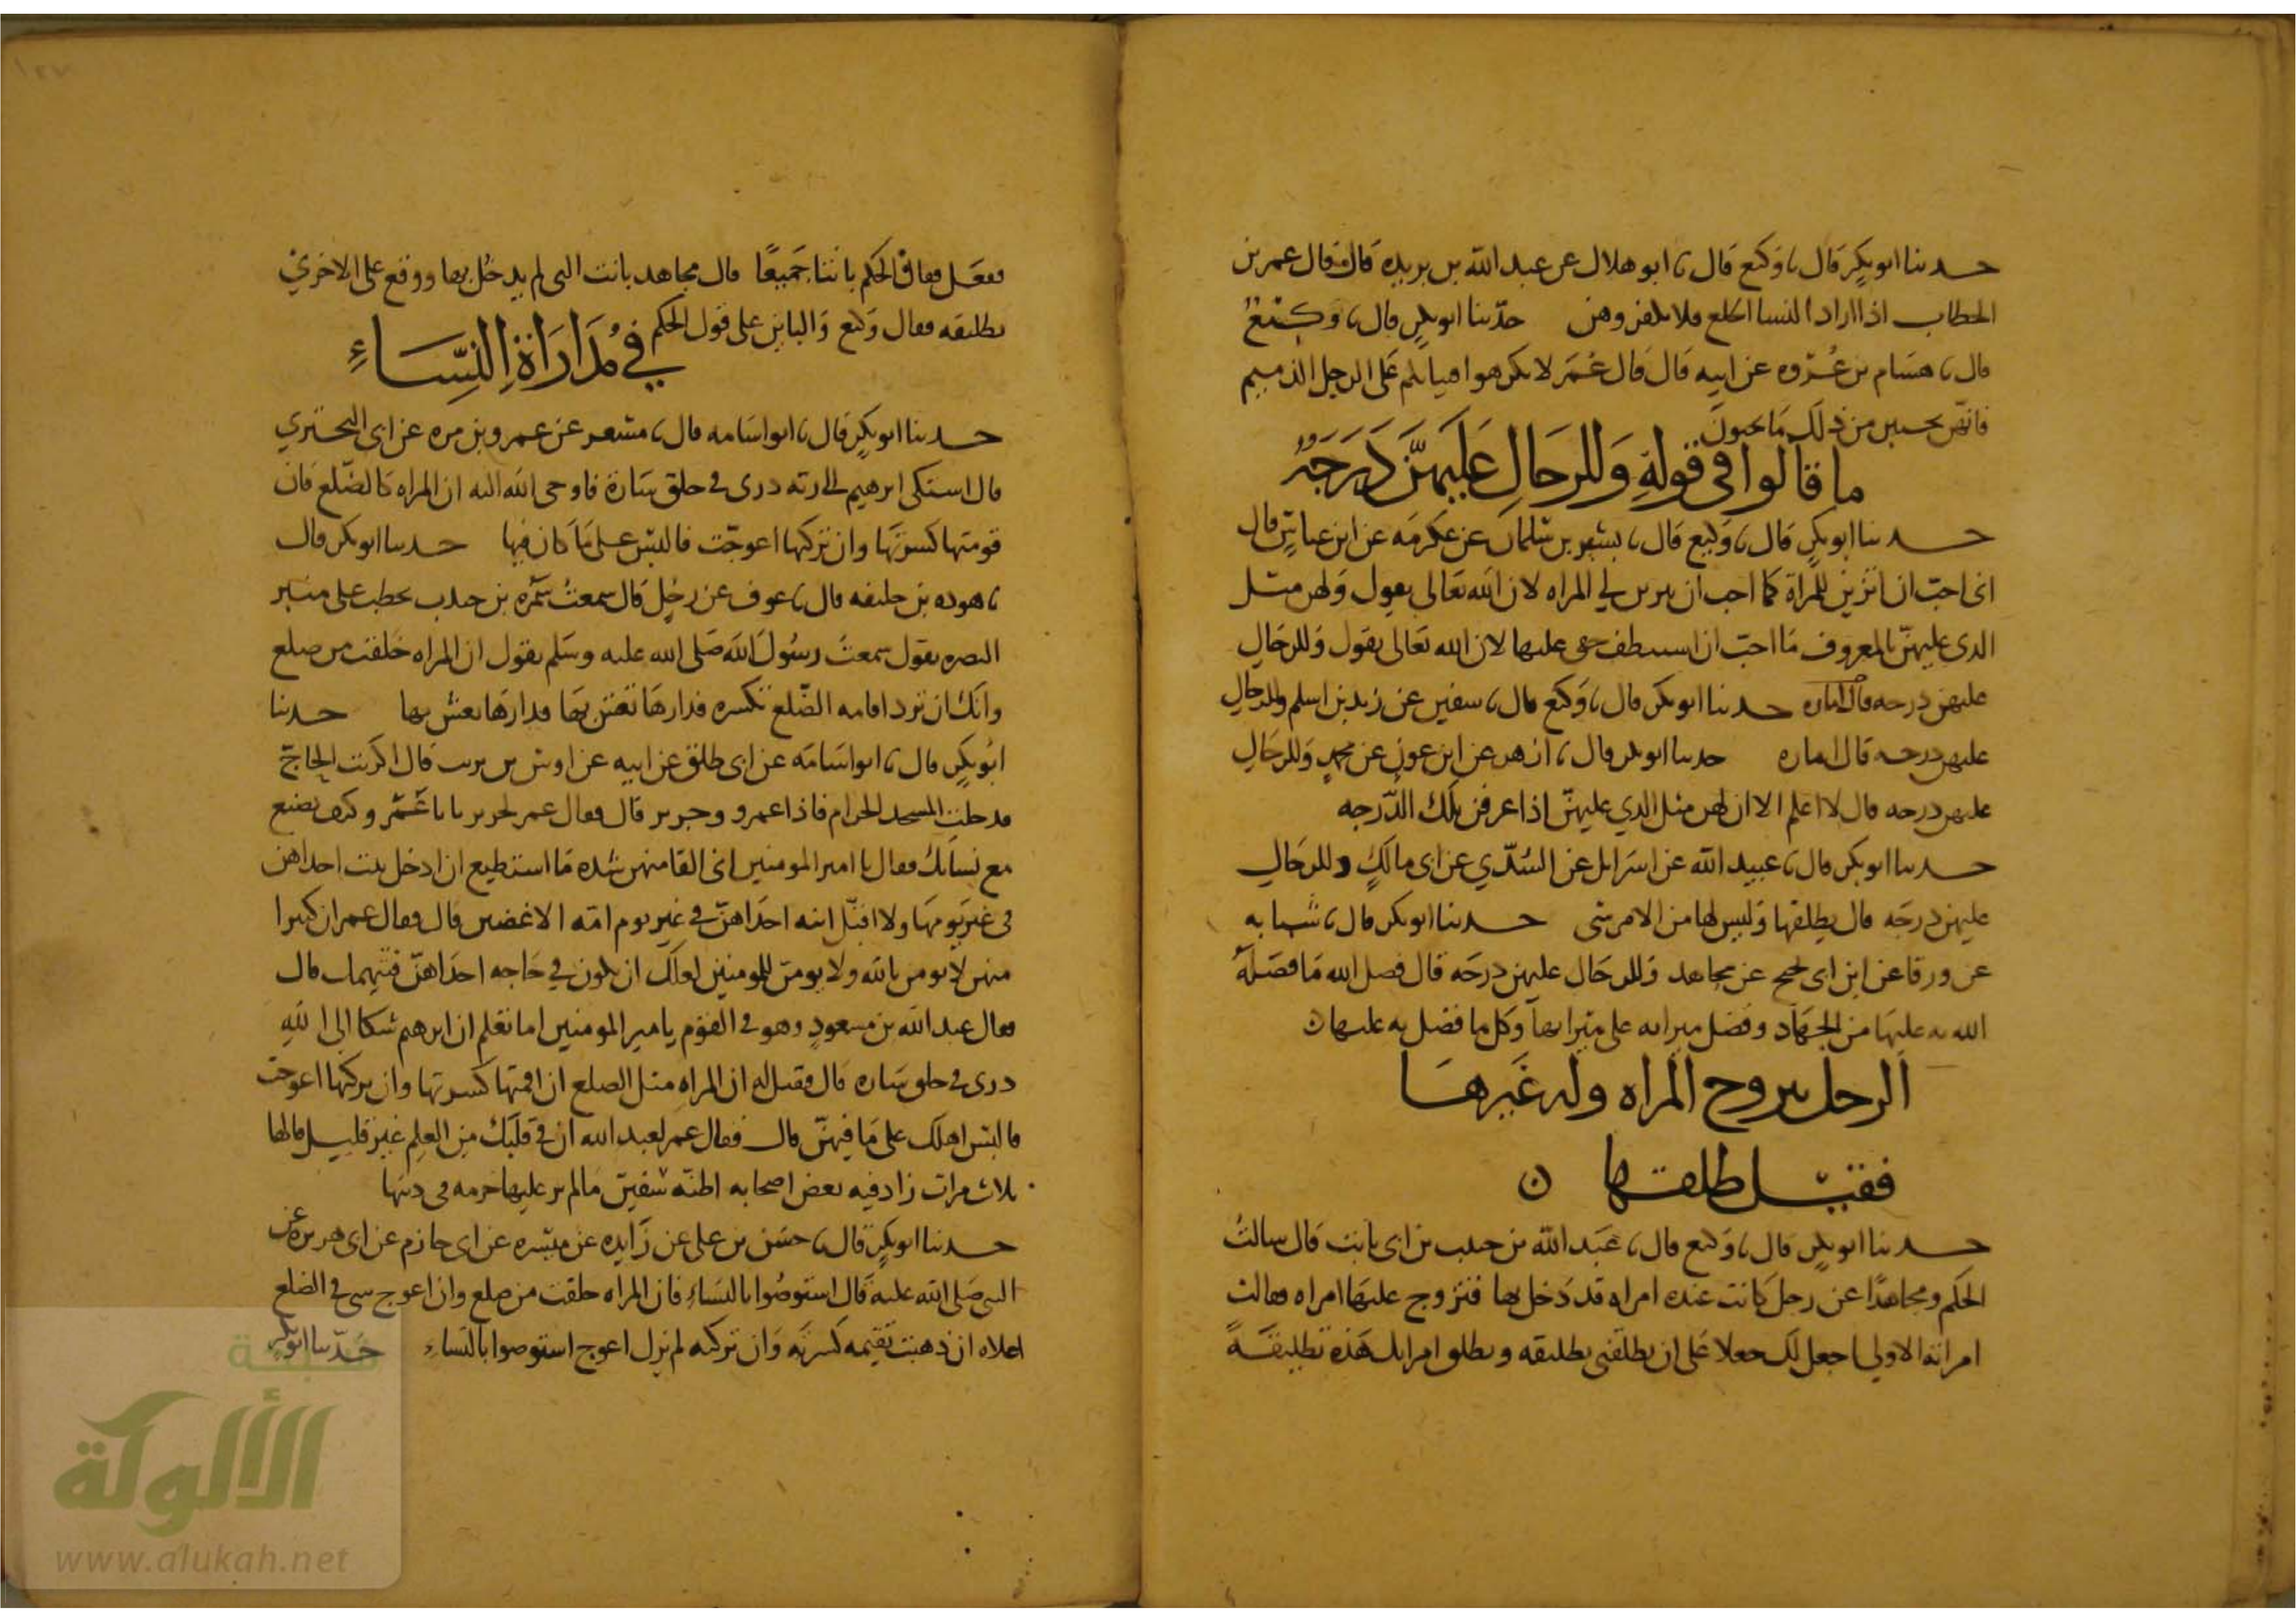 حدثنا ابو بكر قال نا وكيع قال نا ابو هلال عن عبد الله بن بريده قال قال عمر بن
الخطاب اذا اراد النسا الخلع فلا تكفروهن حدثنا ابو بكر قال نا وكيع
قال نا هشام بن عروه عن ابيه قال قال عمر لا تكرهوا فتياتكم على الرجل الذميم
فانهن يحببن من ذلك ما تحبون
ما قالوا في قوله وللرجال عليهن درجة
حدثنا ابو بكر قال نا وكيع قال نا بشير بن سلمان عن عكرمه عن ابن عباس قال
انى احب ان اتزين للمراة كما احب ان تتزين لي المراه لان الله تعالى يقول ولهن مثل
الذى عليهن بالمعروف وما احب ان استنطف حقى عليها لان الله تعالى يقول وللرجال
عليهن درجه قال اماره حدثنا ابو بكر قال نا وكيع قال نا سفين عن زيد بن اسلم وللرجال
عليهن درجه قال اماره حدثنا ابو بكر قال نا ازهر عن ابن عون عن محمد وللرجال
عليهن درجه قال لا اعلم الا ان لهن مثل الذي عليهن اذا عرفن تلك الدرجه
حدثنا ابو بكر قال نا عبيد الله عن اسرائل عن السدي عن ابى مالك وللرجال
عليهن درجه قال يطلقها وليس لها من الامر شى حدثنا ابو بكر قال نا شبابه
عن ورقا عن ابن ابى نجيح عن مجاهد وللرجال عليهن درجه قال فضل الله ما فضله
الله به عليها من الجهاد وفضل ميراثه على ميراثها وكل ما فضل به عليها
الرجل يتزوج المراه وله غيرها
فقيل طلقها
حدثنا ابو بكر قال نا وكيع قال نا عبد الله بن حبيب بن ابى ثابت قال سالت
الحكم ومجاهدا عن رجل كانت عنده امراه قد دخل بها فتزوج عليها امراه فقالت
امراته الاولى اجعل لك جعلا على ان تطلقنى تطليقه وتطلق امراتك هذه تطليقة
ففعل فقال الحكم بانتا جميعا قال مجاهد بانت التى لم يدخل بها ووقع على الاخرى
تطليقه فقال وكيع والباين على قول الحكم
في مداراة النساء
حدثنا ابو بكر قال نا ابو اسامه قال نا مسعر عن عمرو بن مره عن ابى البختري
قال اشتكى ابرهيم الى ربه درى في خلق سارة فاوحى الله اليه ان المراه كالضلع فان
قومتها كسرتها وان تركتها اعوجت فالبس على ما كان فيها حدثنا ابو بكر قال
نا هوده بن خليفه قال نا عوف عن رجل قال سمعت سمره بن جندب يخطب على منبر
البصره يقول سمعت رسول الله صلى الله عليه وسلم يقول ان المراه خلقت من ضلع
وانك ان ترد اقامه الضلع تكسره فدارها تعش بها فدارها تعش بها حدثنا
ابو بكر قال نا ابو اسامه عن ابى طلق عن ابيه عن اوس بن ثريب قال اكريت الحاج
فدخلت المسجد الحرام فاذا عمر و وجرير قال فقال عمر لجرير يابا عمرو كيف تصنع
مع نسائك فقال يا امير المومنين انى القا منهن شده ما استطيع ان ادخل بيت احداهن
فى غير يومها ولا اقبل ابنه احداهن في غير يوم امه الا غضبن قال فقال عمر ان كثيرا
منهن لا يومن بالله ولا يومن للمومنين لعلك ان تكون في حاجه احداهن فتتهمك قال
فقال عبد الله بن مسعود وهو في القوم يا مير المومنين اما تعلم ان ابرهيم شكا الى الله
درى في خلق ساره قال فقيل له ان المراه مثل الضلع ان اقمتها كسرتها وان تركتها اعوجت
فالبس اهلك على ما فيهن قال فقال عمر لعبد الله ان في قلبك من العلم غير قليل قالها
ثلاث مرات زاد فيه بعض اصحابه اظنه سفين ما لم ير عليها خرمه فى دينها
حدثنا ابو بكر قال نا حسين بن على عن زايده عن ميسره عن ابى حازم عن ابى هريره عن
النبى صلى الله عليه قال استوصوا بالنساء فان المراه خلقت من ضلع وان اعوج شى في الضلع
اعلاه ان ذهبت تقيمه كسرته وان تركته لم يزل اعوج استوصوا بالنساء حدثنا ابو بكر
شبكة
الألوكة
www.alukah.net